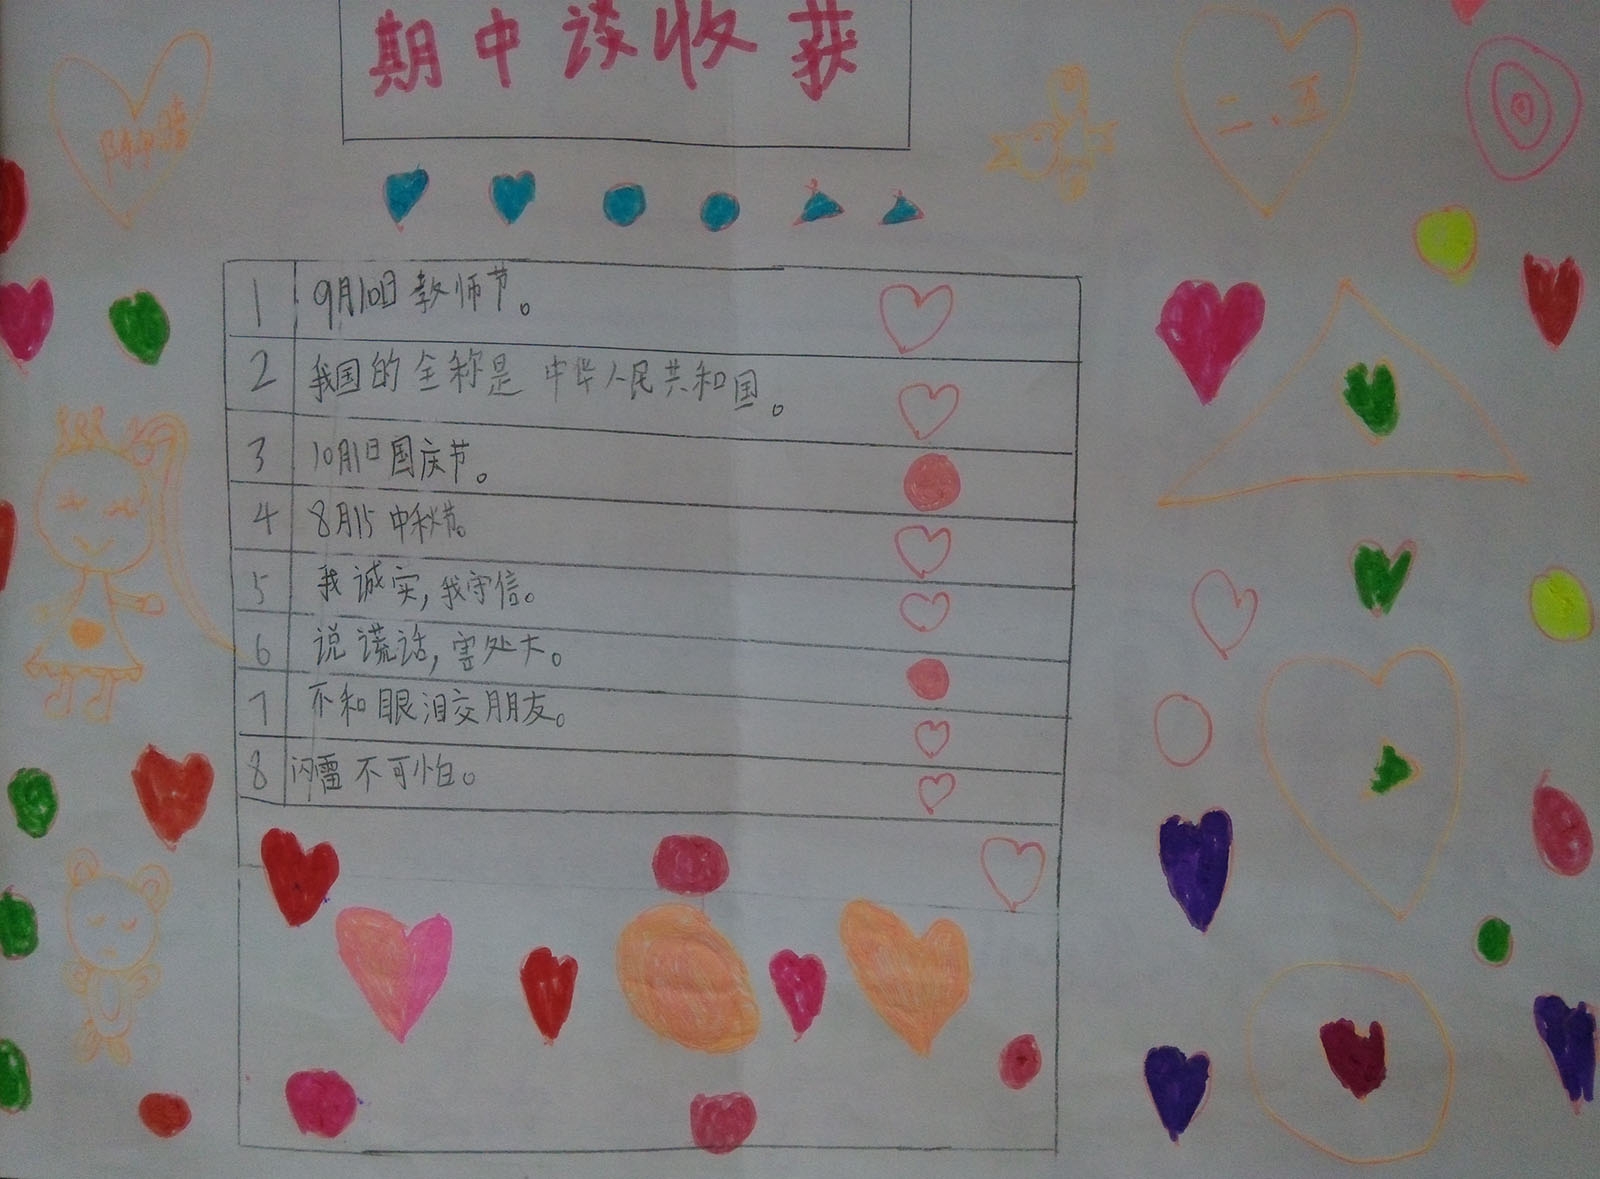 期中谈收获
二、五
1 9月10日教师节。
2 我国的全称是中华人民共和国。
3 10月1日国庆节。
4 8月15中秋节。
5 我诚实,我守信。
6 说谎话,害处大。
7 不和眼泪交朋友。
8 闪雷不可怕。